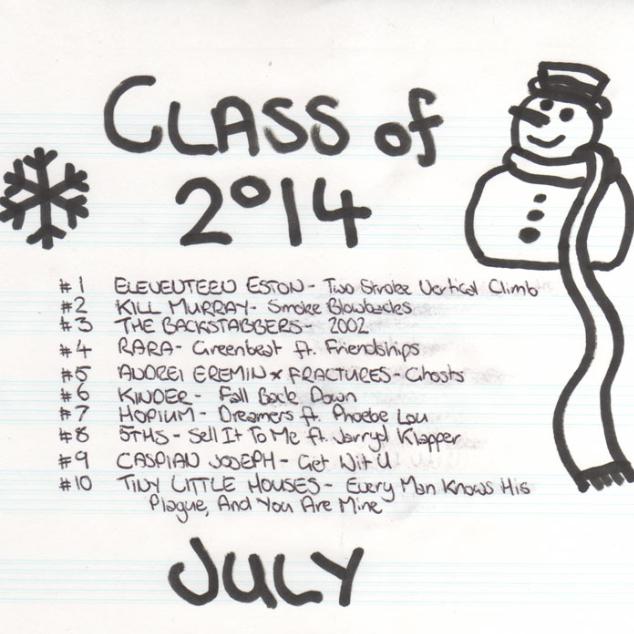 CLASS of
2014
#1 ELEVENTEEN ESTON - Two Stroke Vertical Climb
#2 KILL MURRAY - Smoke Blowbacks
#3 THE BACKSTABBERS - 2002
#4 RARA - Greenbeat ft. Friendships
#5 ANDREI EREMIN x FRACTURES - Ghosts
#6 KINDER - Fall Back Down
#7 HOPIUM - Dreamers ft. Phoebe Lou
#8 5THS - Sell It To Me ft. Jarryd Klapper
#9 CASPIAN JOSEPH - Get Wit U
#10 TINY LITTLE HOUSES - Every Man Knows His
Plague, And You Are Mine
JULY